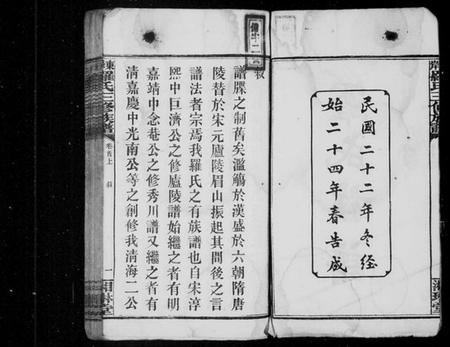 民國二十二年冬經
始二十四年春告成
羅氏三修族譜
敘
譜牒之制舊矣濫觴於漢盛於六朝隋唐
陵替於宋元廬陵眉山振起其間後之言
譜法者宗焉我羅氏之有族譜也自宋淳
熙中巨濟公之修廬陵譜始繼之者有明
嘉靖中念菴公之修秀川譜又繼之者有
清嘉慶中光南公等之創修我清海二公
羅氏三修族譜
卷首上
敘
一